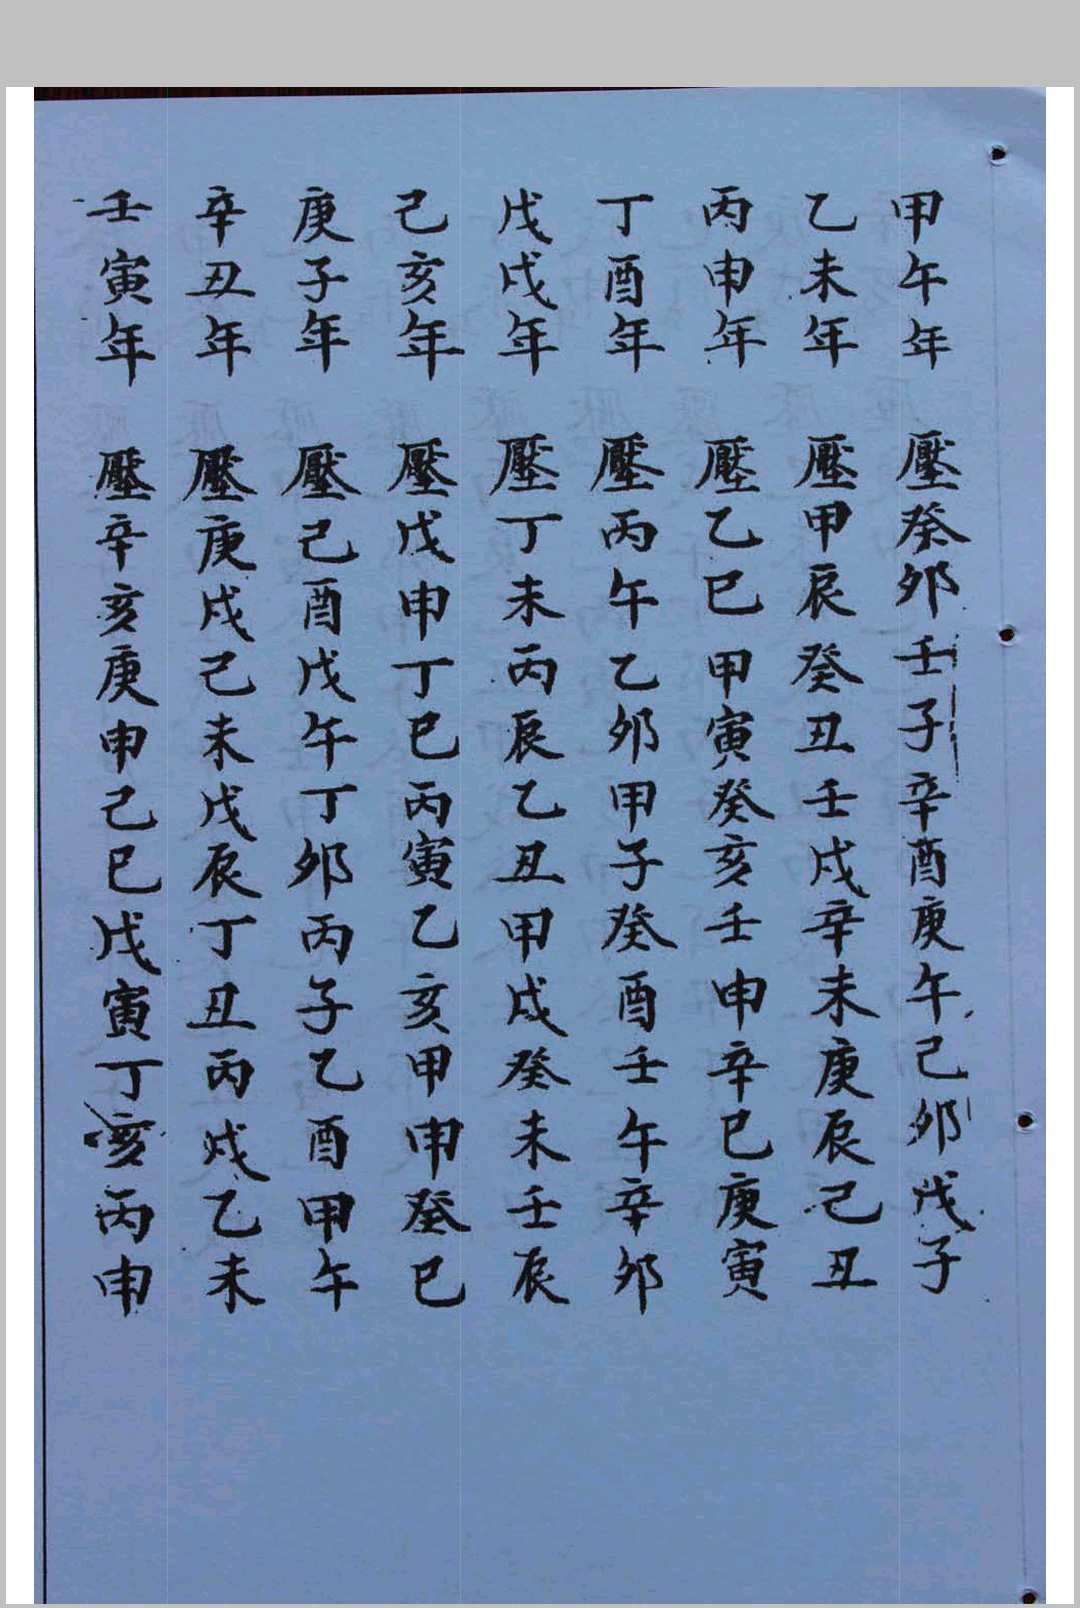 甲午年 壓癸卯壬子辛酉庚午己卯戊子
乙未年 壓甲辰癸丑壬戌辛未庚辰己丑
丙申年 壓乙巳甲寅癸亥壬申辛巳庚寅
丁酉年 壓丙午乙卯甲子癸酉壬午辛卯
戊戌年 壓丁未丙辰乙丑甲戌癸未壬辰
己亥年 壓戊申丁巳丙寅乙亥甲申癸巳
庚子年 壓己酉戊午丁卯丙子乙酉甲午
辛丑年 壓庚戌己未戊辰丁丑丙戌乙未
壬寅年 壓辛亥庚申己巳戊寅丁亥丙申